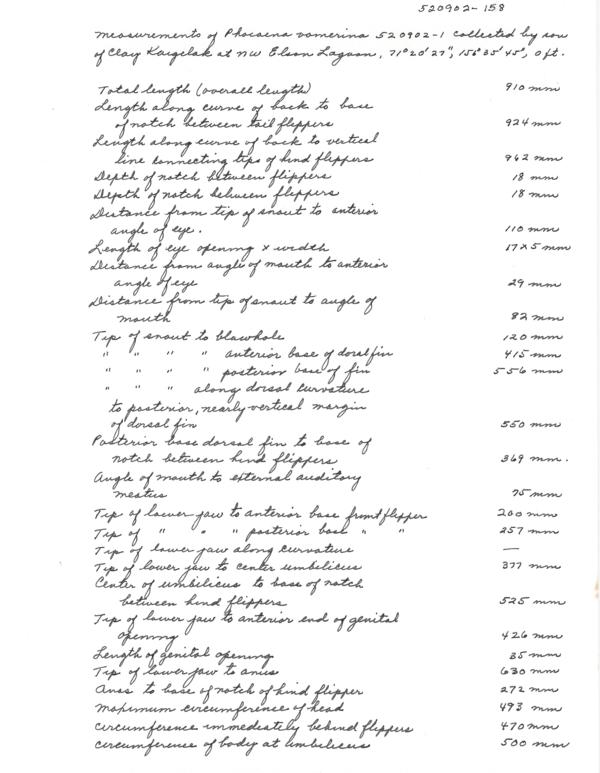 520902-158
Measurements of Phocaena vomerina 520902-1 collected by son
of Clay Kaigelak at NW Elson Lagoon, 71°20'27", 156°35'45", 0 ft.
Total length (overall length) 910 mm
Length along curve of back to base
of notch between tail flippers 924 mm
Length along curve of back to vertical
line connecting tips of hind flippers 962 mm
Depth of notch between flippers 18 mm
Depth of notch between flippers 18 mm
Distance from tip of snout to anterior
angle of eye. 110 mm
Length of eye opening x width 17 x 5 mm
Distance from angle of mouth to anterior
angle of eye 29 mm
Distance from tip of snout to angle of
mouth 82 mm
Tip of snout to blowhole 120 mm
" " " " anterior base of dorsal fin 415 mm
" " " " posterior base of fin 556 mm
" " " along dorsal curvature
to posterior, nearly-vertical margin
of dorsal fin 550 mm
Posterior base dorsal fin to base of
notch between hind flippers 369 mm.
Angle of mouth to external auditory
meatus 75 mm
Tip of lower jaw to anterior base front flipper 200 mm
Tip of " " " posterior base " " 257 mm
Tip of lower jaw along curvature —
Tip of lower jaw to center umbilicus 377 mm
Center of umbilicus to base of notch
between hind flippers 525 mm
Tip of lower jaw to anterior end of genital
opening 426 mm
Length of genital opening 35 mm
Tip of lower jaw to anus 630 mm
Anus to base of notch of hind flipper 272 mm
Maximum circumference of head 493 mm
Circumference immediately behind flippers 470 mm
Circumference of body at umbilicus 500 mm